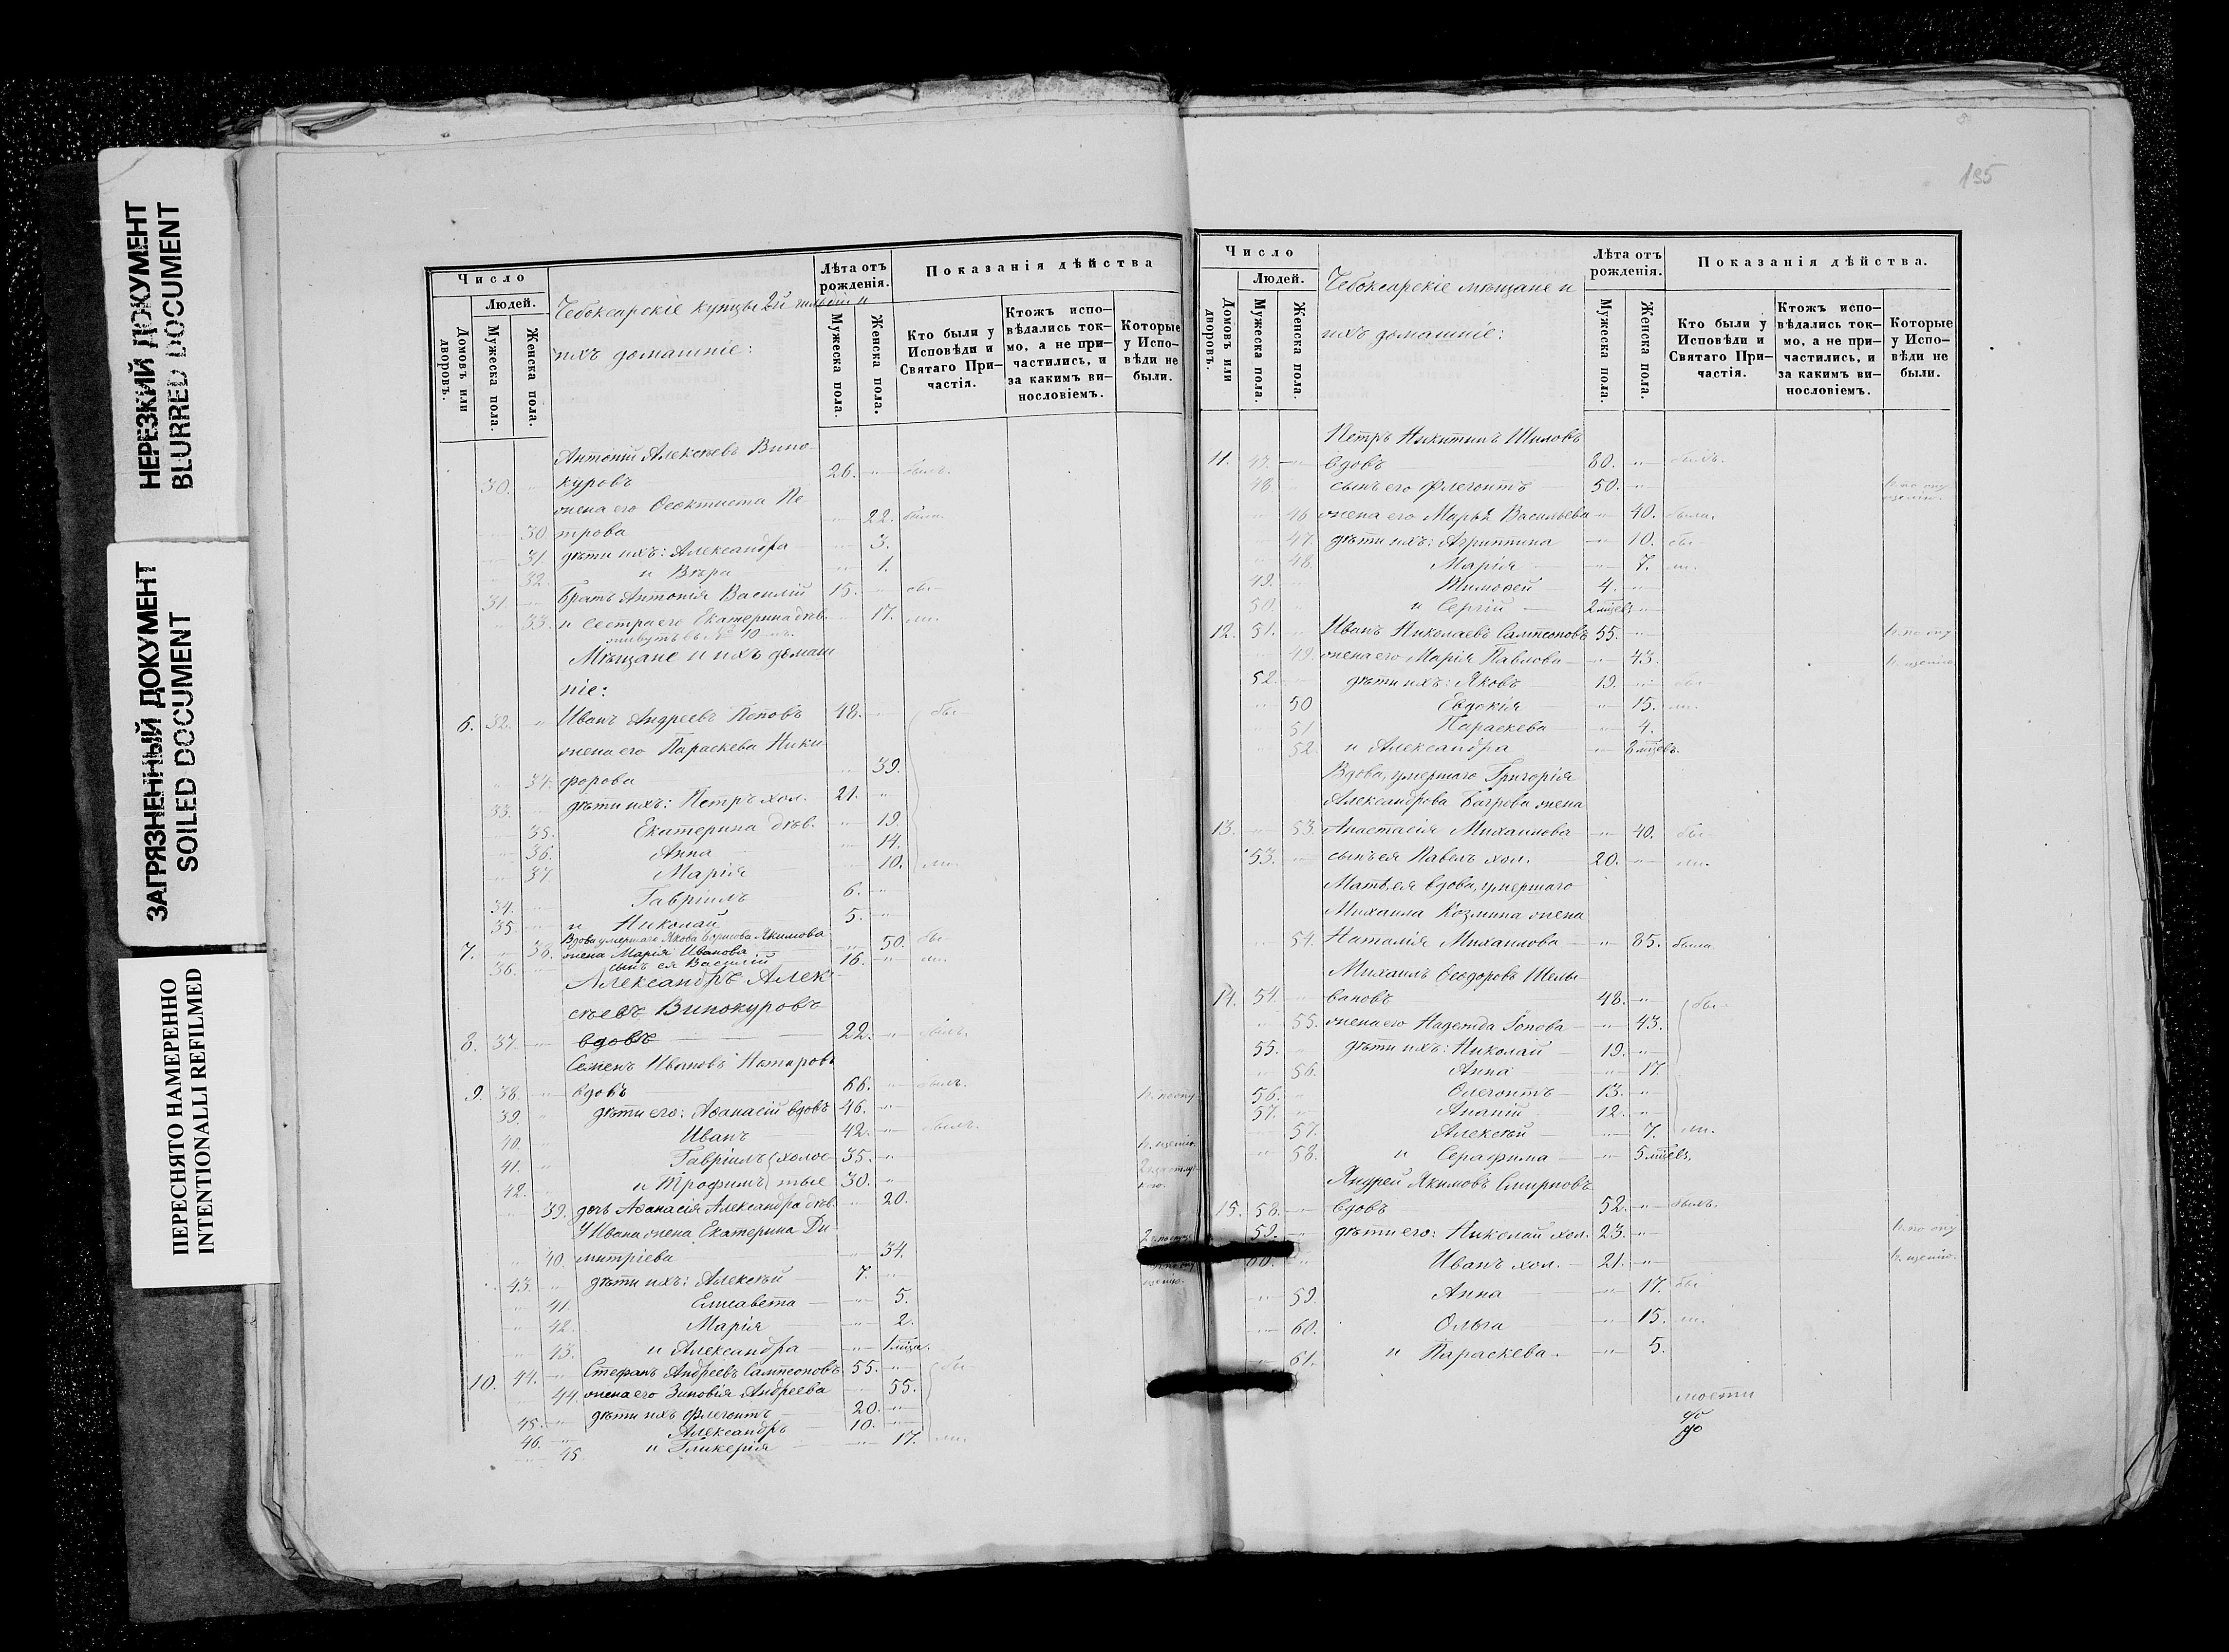 НЕРЕЗКИЙ ДОКУМЕНТ
BLURRED DOCUMENT
ЗАГРЯЗНЕННЫЙ ДОКУМЕНТ
SOILED DOCUMENT
ПЕРЕСНЯТО НАМЕРЕННО
INTENTIONALLI REFILMED
Число
Людей.
Домовъ или дворовъ.
Мужеска пола.
Женска пола.
Чебоксарскіе купцы 2й гильдіи и
ихъ домашніе:
Лѣта отъ рожденія.
Мужеска пола.
Женска пола.
Показанія дѣйства
Кто были у Исповѣди и Святаго При-частія.
Ктожъ испо-вѣдались ток-мо, а не при-частились, и за какимъ ви-нословіемъ.
Которые у Испо-вѣди не были.
Антоній Алексѣевъ Вино-
30. куровъ 26. былъ.
жена его Ѳеоктиста Пе-
30. трова 22. была.
31. дѣти ихъ: Александра 3.
32. и Вѣра 1.
31. Братъ Антонія Василій 15. бы-
33. и сестра его Екатерина дѣв. 17. ли.
живутъ въ № 10
Мѣщане и ихъ домаш
ніе:
6. 32. Иванъ Андреевъ Поповъ 48. бы-
жена его Параскева Ники-
34. форова 39.
33. дѣти ихъ: Петръ хол. 21.
35. Екатерина дѣв. 19.
36. Анна 14.
37. Марія 10. ли.
34. Гавріилъ 6.
35. и Николай 5.
Вдова умершаго Якова Борисова Якимова
7. 38. жена Марія Иванова 50. бы-
36. сынъ ея Василій 16. ли.
Александръ Алек-
сѣевъ Винокуровъ
8. 37. вдовъ 22. былъ.
Семенъ Ивановъ
9. 38. вдовъ 66. былъ.
39. дѣти его: Аѳанасій вдовъ 46. 1. по опу
40. Иванъ 42. былъ.
41. Гавріилъ холос- 35. 1. щенію.
42. и Трофимъ тые 30.
39. дочь Аѳанасія Александра дѣв. 20.
У Ивана жена Екатерина Ди-
40. митріева 34.
43. дѣти ихъ: Алексѣй 7.
41. Елисавета 5.
42. Марія 2.
43. и Александра 1 мца.
10. 44. Стефанъ Андреевъ Сампсоновъ 55. бы-
44. жена его Зиновія Андреева 55.
45. дѣти ихъ Флегонтъ 20.
46. Александръ 10.
45 и Гликерія 17. ли.
195
Число
Людей.
Домовъ или дворовъ.
Мужеска пола.
Женска пола.
Чебоксарскіе мѣщане и
ихъ домашніе:
Лѣта отъ рожденія.
Мужеска пола.
Женска пола.
Показанія дѣйства.
Кто были у Исповѣди и Святаго При-частія.
Ктожъ испо-вѣдались ток-мо, а не при-частились, и за какимъ ви-нословіемъ.
Которые у Испо-вѣди не были.
Петръ Никитинъ Шиловъ
11. 47. вдовъ 80. былъ.
48. сынъ его Флегонтъ 50. 1. по опу
щенію.
46 жена его Марья Васильева 40. была.
47. дѣти ихъ: Агриппина 10. бы-
48. Марія 7. ли.
49. Тимоѳей 4.
50. и Сергій 2 мцевъ
12. 51. Иванъ Николаевъ Сампсоновъ 55. 1. по опу
49. жена его Марія Павлова 43. 1. щенію.
52. дѣти ихъ: Яковъ 19. бы-
50 Евдокія 15. ли.
51 Параскева 4.
52. и Александра 8 мцевъ.
Вдова, умершаго Григорія
Александрова Багрова жена
13. 53. Анастасія Михаилова 40. бы-
53. сынъ ея Павелъ хол. 20. ли.
Мать ея вдова, умершаго
Михаила Козмина жена
54. Наталія Михаилова 85. была.
Михаилъ Ѳеодоровъ Шелы-
14. 54. вановъ 48. бы-
55. жена его Надежда Іонова 43.
55. дѣти ихъ: Николай 19.
56. Анна 17
56. Флегонтъ 13.
57. Ананій 12.
57. Алексѣй 7. ли.
58. и Серафима 5 мцевъ.
Андрей Якимовъ Смирновъ
15. 58. вдовъ 52. былъ.
59. дѣти его: Николай хол. 23. 1. по опу
60. Иванъ хол. 21. 1. щенію.
59. Анна 17. бы
60. Ольга 15. ли.
61. и Параскева 5.